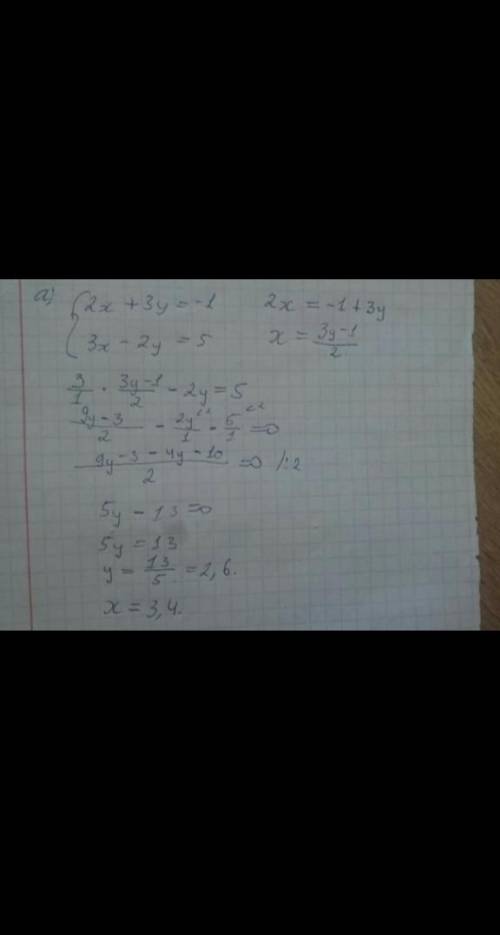 а) {2x + 3y = -1    2x = -1 + 3y
3x - 2y = 5    x = \frac{3y-1}{2}
\frac{3}{1} · \frac{3y-1}{2} - 2y = 5
\frac{9y-3}{2} - \frac{2y}{1}^{(2} - \frac{5}{1}^{(2} = 0
\frac{9y-3-4y-10}{2} = 0 /:2
5y - 13 = 0
5y = 13
y = \frac{13}{5} = 2,6.
x = 3,4.